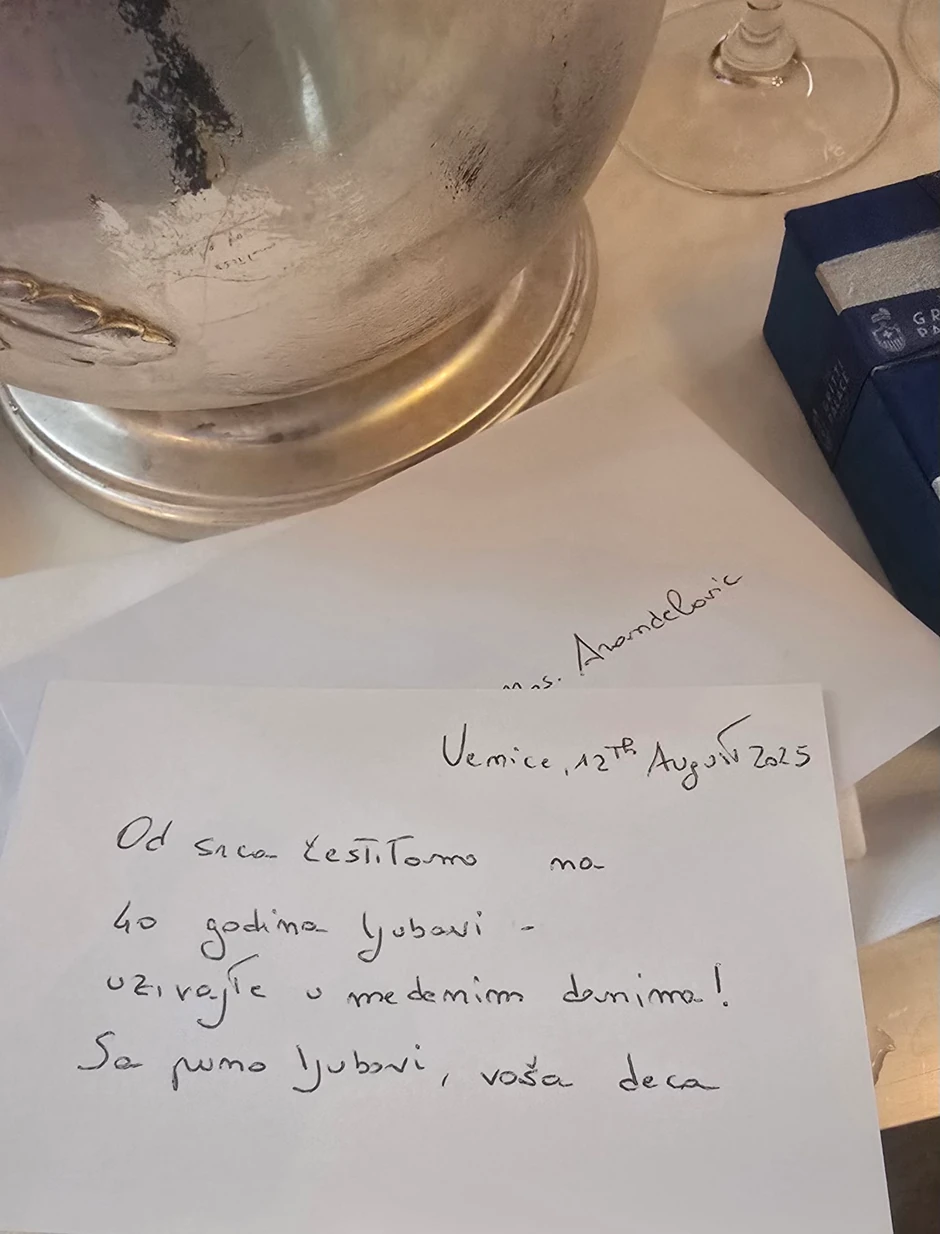 GR
PA
PALACE
Mrs. Arandelovic
Venice, 12Th August 2025
Od srca čestitamo na
40 godina ljubavi -
uzivajte u medenim danima!
Sa puno ljubavi, vaša deca